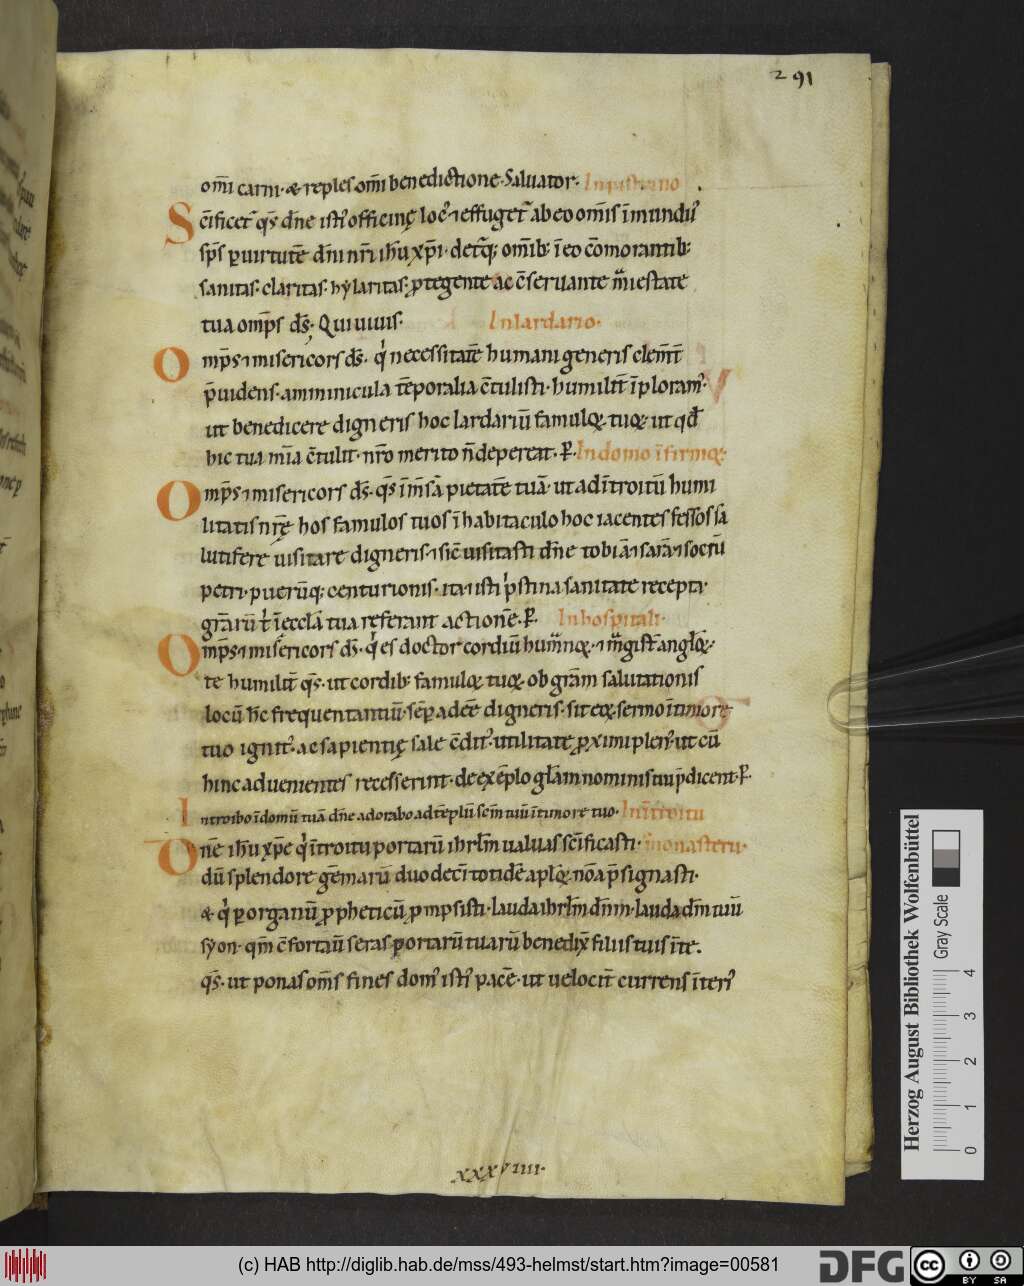 291
om̄i carni· & reples om̄i benedictione· Saluator· In pistrino
Sc̄ificet᷒ qs̄ dn̄e isti᷒ officinę loc᷒ ⁊ effuget᷒ ab eo om̄is īmund᷒
sp̄s ꝑ uirtutē dn̄i nr̄i ih̄u xp̄i· detq̄; om̄ib; ī eo c̄omorantib;
sanitas· claritas· hẏlaritas· ꝓtegente ac c̄seruante maiestate
tua omp̄s ds̄· Qui uiuis· In lardario·
Omp̄s ⁊ misericors ds̄· qͥ necessitatē humani generis clem̄t̄
p̄uidens· amminicula tēporalia c̄tulisti· humilit̄ īploram᷒
ut benedicere digneris hoc lardariū famuloꝝ tuoꝝ· ut qđ
hic tua mīa c̄tulit· nr̄o merito n̄ depereat· P· In domo īfirmoꝝ·
Omp̄s ⁊ misericors ds̄· qs̄ īm̄sā pietatē tuā· ut ad ītroitū humi
litatis nr̄ę hos famulos tuos ī habitaculo hoc iacentes fessos sa
lutifere uisitare digneris ⁊ sic̄ uisitasti dn̄e tobiā ⁊ sarā ⁊ socrū
petri· puerūq; centurionis· ita ⁊ isti pͥstina sanitate recepta·
gr̄arū tͥ ī eccl̄a tua referant actionē· P· In hospitali·
Omp̄s ⁊ misericors ds̄· qͥ es doctor cordiū humanoꝝ· ⁊ magist̄ angl̄oꝝ·
te humilit̄ qs̄· ut cordib; famuloꝝ tuoꝝ ob gr̄am salutationis
locū hc̄ frequentantiū· sēꝑ adeē digneris· sit eoꝝ sermo ī timore
tuo ignit᷒· ac sapientię sale c̄dit᷒· utilitate ꝓximi plen᷒· ut cū
hinc aduenientes recesserint· de exēplo gl̄am nominis tui p̄dicent· P·
Introibo ī domū tuā dn̄e adorabo ad tēplū sc̄m tuū ī timore tuo· In ītroitu
Dn̄e ih̄u xp̄e qͥ ītroitu portarū ihrl̄m ualuas sc̄ificasti· monasterii·
dū splendore gēmarū duodecī totidē apl̄oꝝ nōa p̄signasti·
& qͥ ꝑ organū ꝓpheticū ꝓmpsisti· Lauda ihrl̄m dn̄m· lauda dm̄ tuū
sẏon· qm̄ c̄fortauͥ seras portarū tuarū benedix̄ filiis tuis ī te·
qs̄· ut ponas om̄s fines dom᷒ isti᷒ pacē· ut uelocit̄ currens īteri᷒
xxxviiii·
Herzog August Bibliothek Wolfenbüttel
Gray Scale
0 1 2 3 4
(c) HAB http://diglib.hab.de/mss/493-helmst/start.htm?image=00581
DFG
cc BY SA